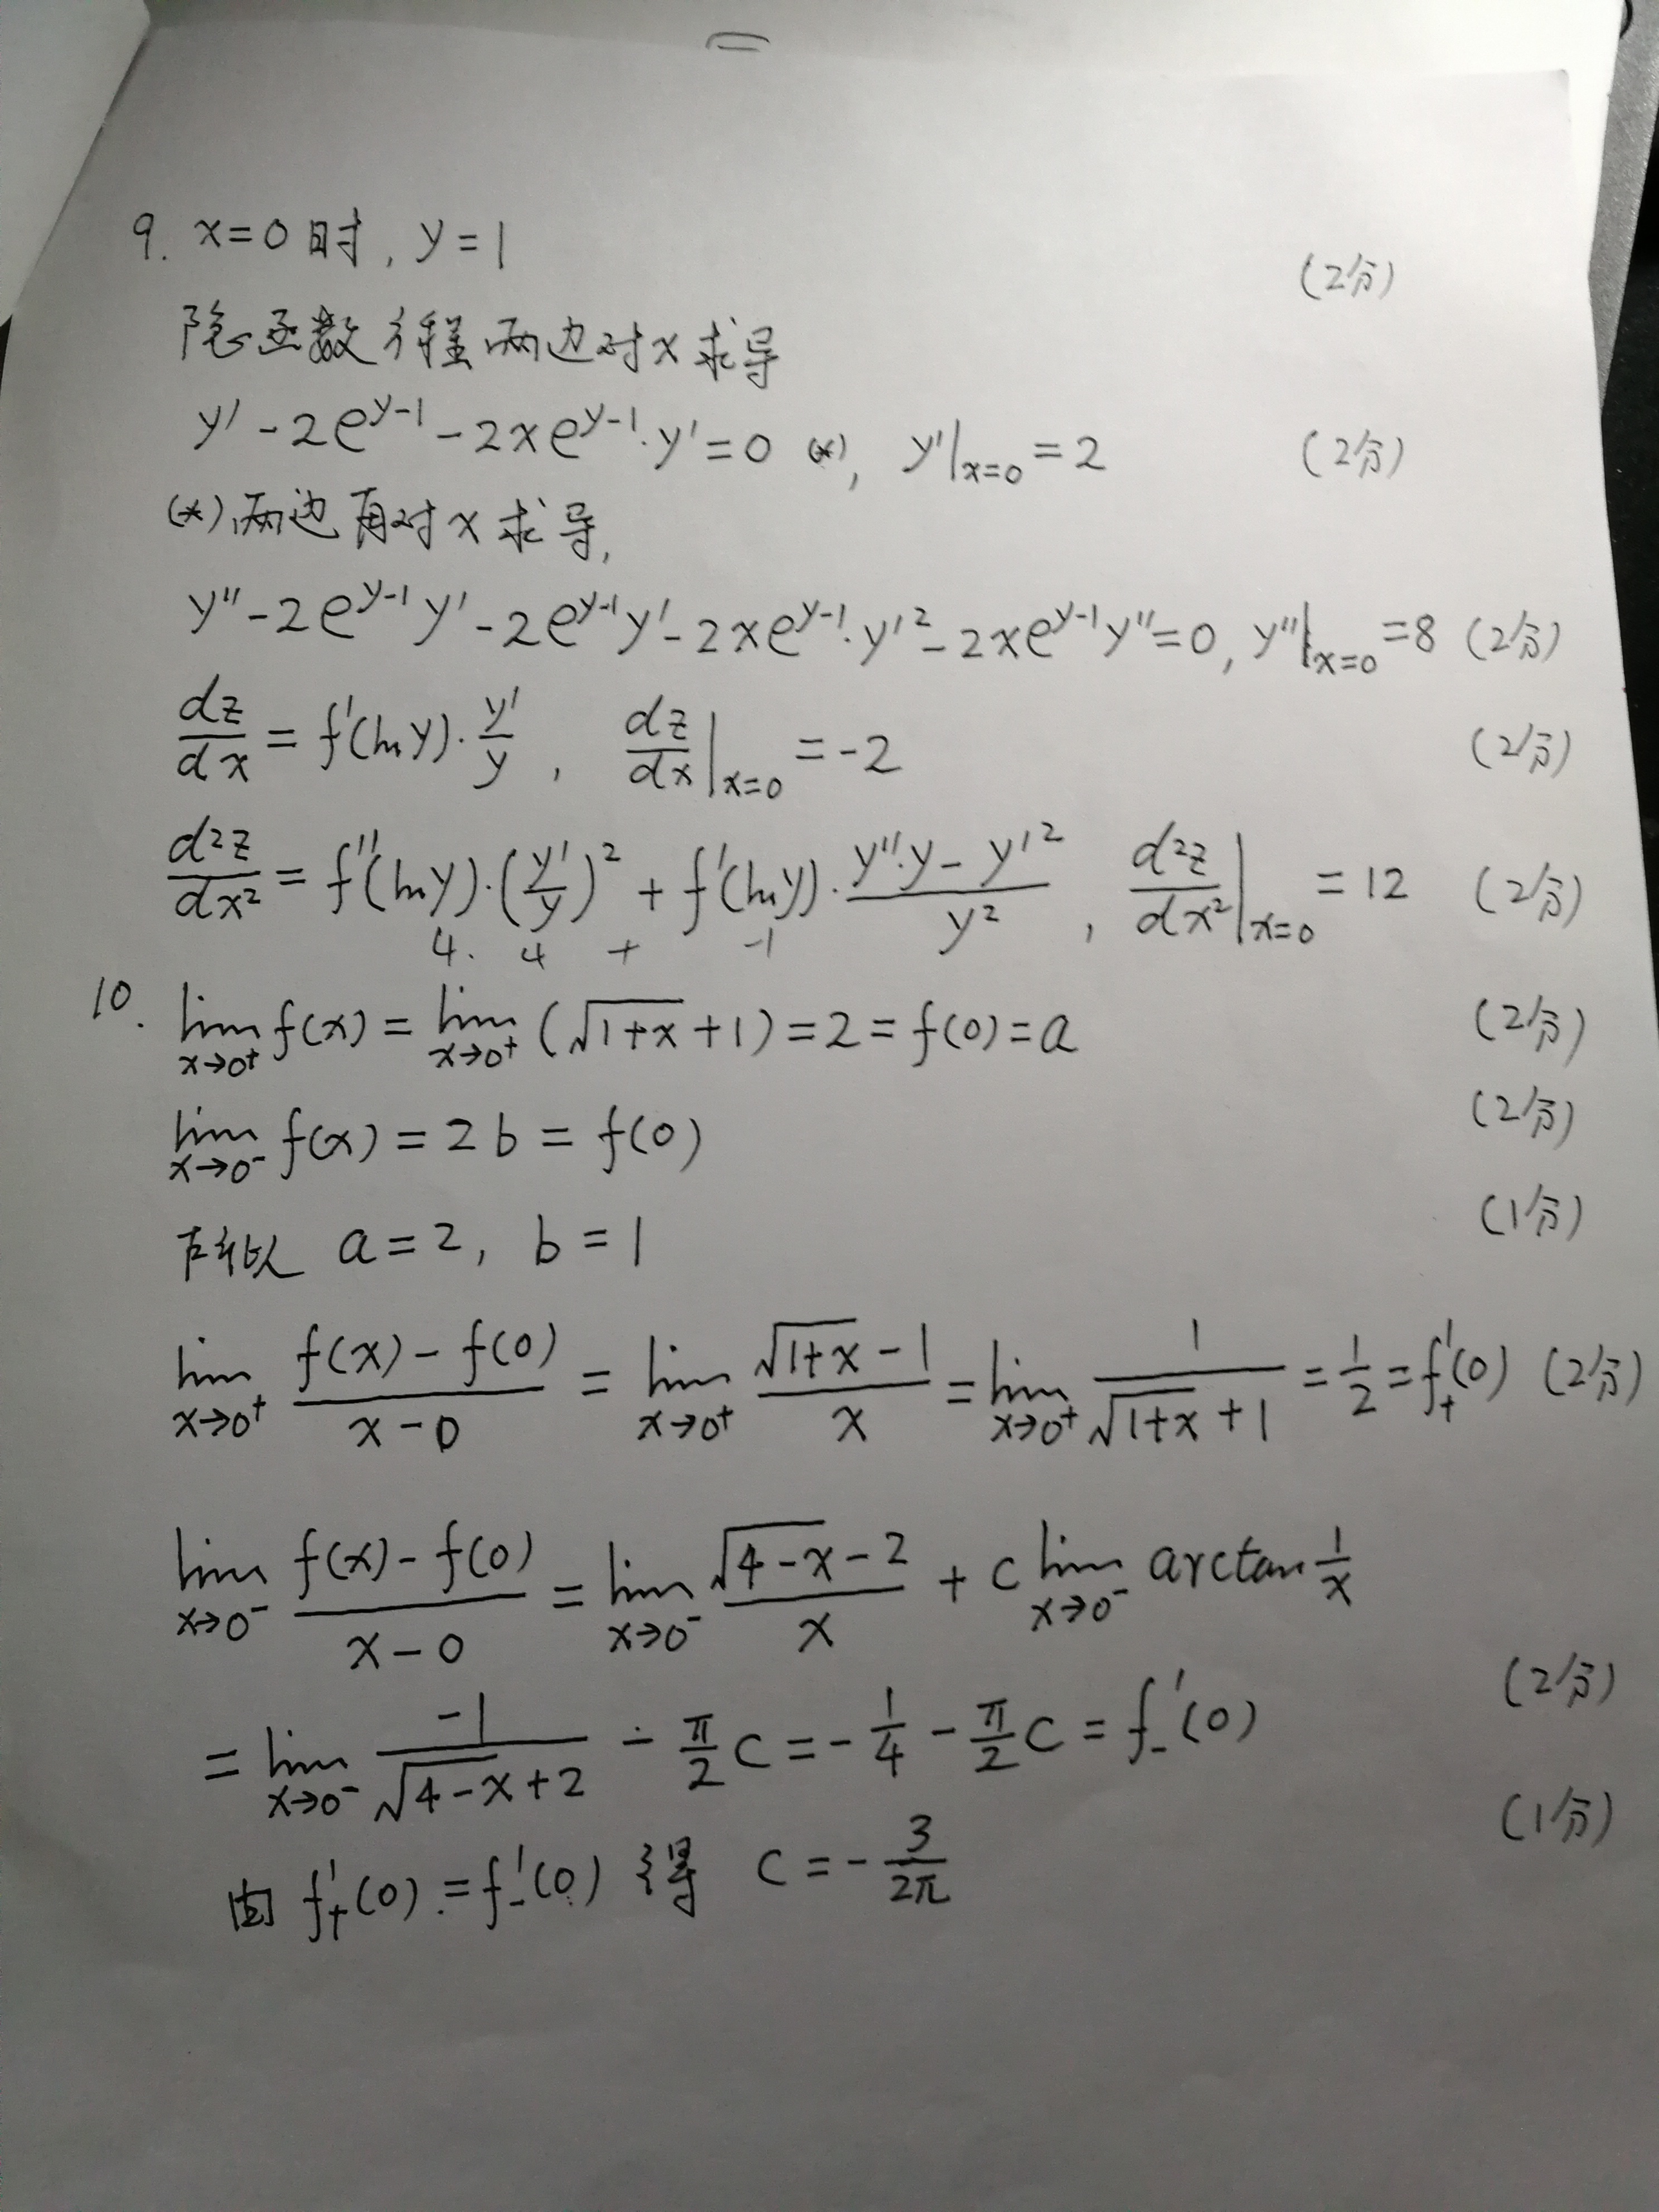 9. x=0时, y=1 (2分)
隐函数方程两边对x求导
y′-2e^{y-1}-2xe^{y-1}·y′=0 (*), y′|_{x=0}=2 (2分)
(*)两边再对x求导,
y″-2e^{y-1}y′-2e^{y-1}y′-2xe^{y-1}·y′²-2xe^{y-1}y″=0, y″|_{x=0}=8 (2分)
dz/dx=f′(lny)·y′/y, dz/dx|_{x=0}=-2 (2分)
d²z/dx²=f″(lny)·(y′/y)²+f′(lny)·(y″·y-y′²)/y², d²z/dx²|_{x=0}=12 (2分)
4. 4 + -1
10. lim_{x→0⁺} f(x)=lim_{x→0⁺}(√(1+x)+1)=2=f(0)=a (2分)
lim_{x→0⁻} f(x)=2b=f(0) (2分)
a=2, b=1 (1分)
lim_{x→0⁺} (f(x)-f(0))/(x-0)=lim_{x→0⁺} (√(1+x)-1)/x=lim_{x→0⁺} 1/(√(1+x)+1)=1/2=f′₊(0) (2分)
lim_{x→0⁻} (f(x)-f(0))/(x-0)=lim_{x→0⁻} (√(4-x)-2)/x+c lim_{x→0⁻} arctan 1/x
=lim_{x→0⁻} -1/(√(4-x)+2)-π/2 c=-1/4-π/2 c=f′₋(0) (2分)
由 f′₊(0)=f′₋(0) 得 c=-3/(2π) (1分)